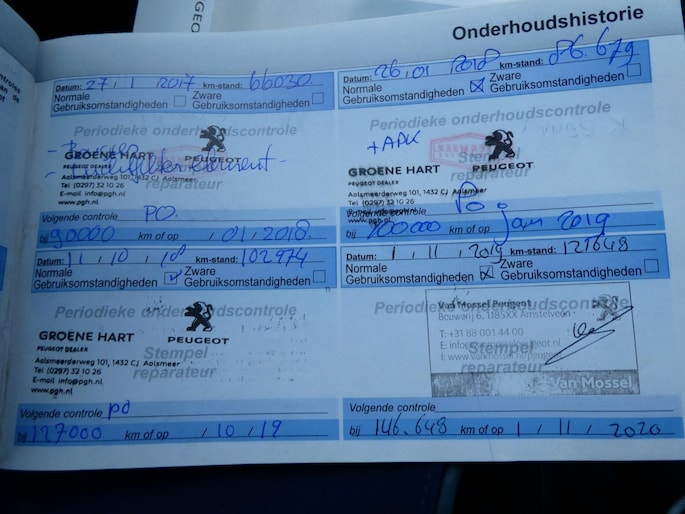 Onderhoudshistorie
Datum: 27 / 1 2017 km-stand: 66030.
Normale Gebruiksomstandigheden Zware Gebruiksomstandigheden
Periodieke onderhoudscontrole
GROENE HART PEUGEOT
PEUGEOT DEALER
Aalsmeerderweg 101, 1432 CJ Aalsmeer
Tel (0297) 32 10 26
E-mail info@pgh.nl
www.pgh.nl
Stempel
reparateur
Volgende controle PO.
bij 90000 km of op / 01 / 2018.
Datum: 26, 01 2018 km-stand: 86.679
Normale Gebruiksomstandigheden Zware Gebruiksomstandigheden
Periodieke onderhoudscontrole
+ APK
GROENE HART PEUGEOT
PEUGEOT DEALER
Aalsmeerderweg 101, 1432 CJ Aalsmeer
Tel (0297) 32 10 26
E-mail info@pgh.nl
www.pgh.nl
Stempel
reparateur
Volgende controle
bij 100000 km of op jan 2019
Datum: 11 / 10 / 18 km-stand: 102974
Normale Gebruiksomstandigheden Zware Gebruiksomstandigheden
Periodieke onderhoudscontrole
GROENE HART PEUGEOT
PEUGEOT DEALER
Aalsmeerderweg 101, 1432 CJ Aalsmeer
Tel (0297) 32 10 26
E-mail info@pgh.nl
www.pgh.nl
Stempel
reparateur
Volgende controle PO
bij 127000 km of op / 10 / 19
Datum: 1 / 11 / 2019 km-stand: 121648
Normale Gebruiksomstandigheden Zware Gebruiksomstandigheden
Periodieke onderhoudscontrole
Van Mossel Peugeot
Bouwerij 6, 1185XX Amstelveen
T: +31 88 001 44 00
Stempel
reparateur
Van Mossel
Volgende controle
bij 146.648 km of op 1 / 11 / 2020